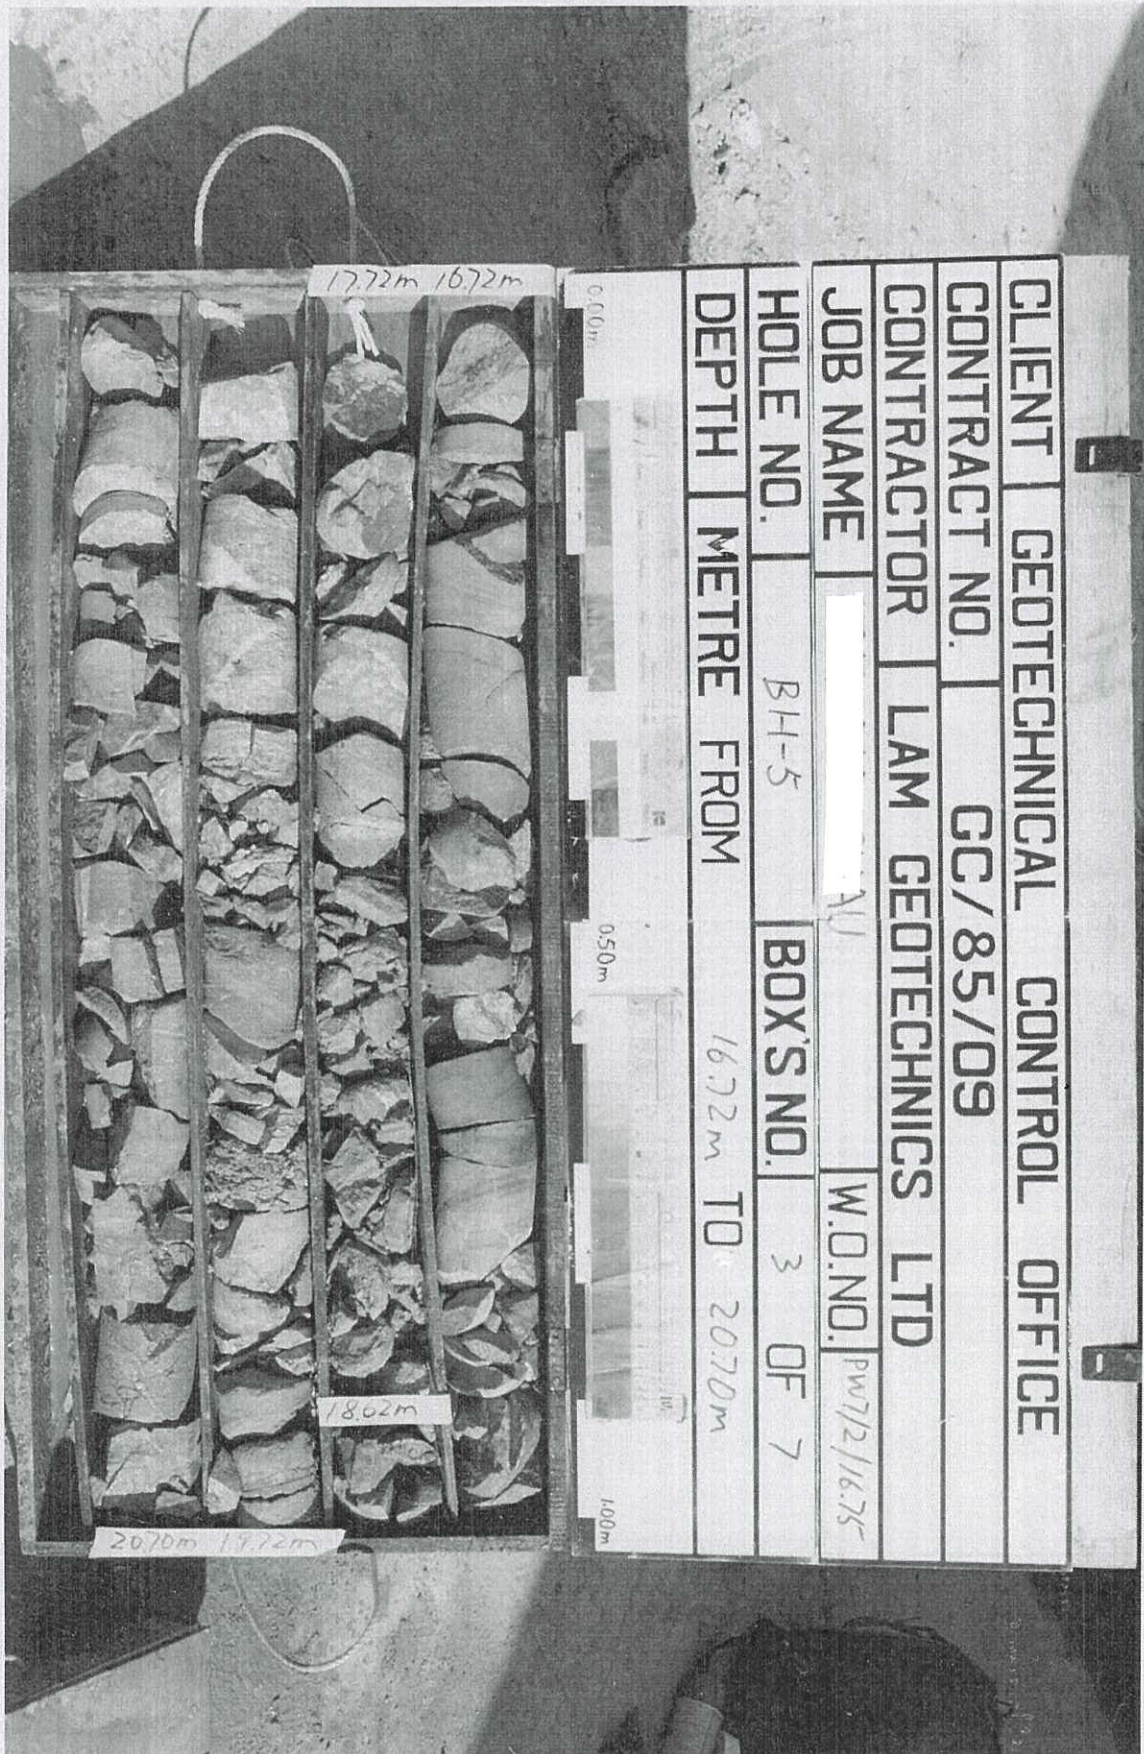 CLIENT GEOTECHNICAL CONTROL OFFICE
CONTRACT NO. GC/85/09
CONTRACTOR LAM GEOTECHNICS LTD
JOB NAME AU W.O.NO. PW7/2/16.75
HOLE NO. BH-5 BOX'S NO. 3 OF 7
DEPTH METRE FROM 16.72m TO 20.70m
0.00m 0.50m 1.00m
17.72m 16.72m
18.62m
20.70m 19.72m